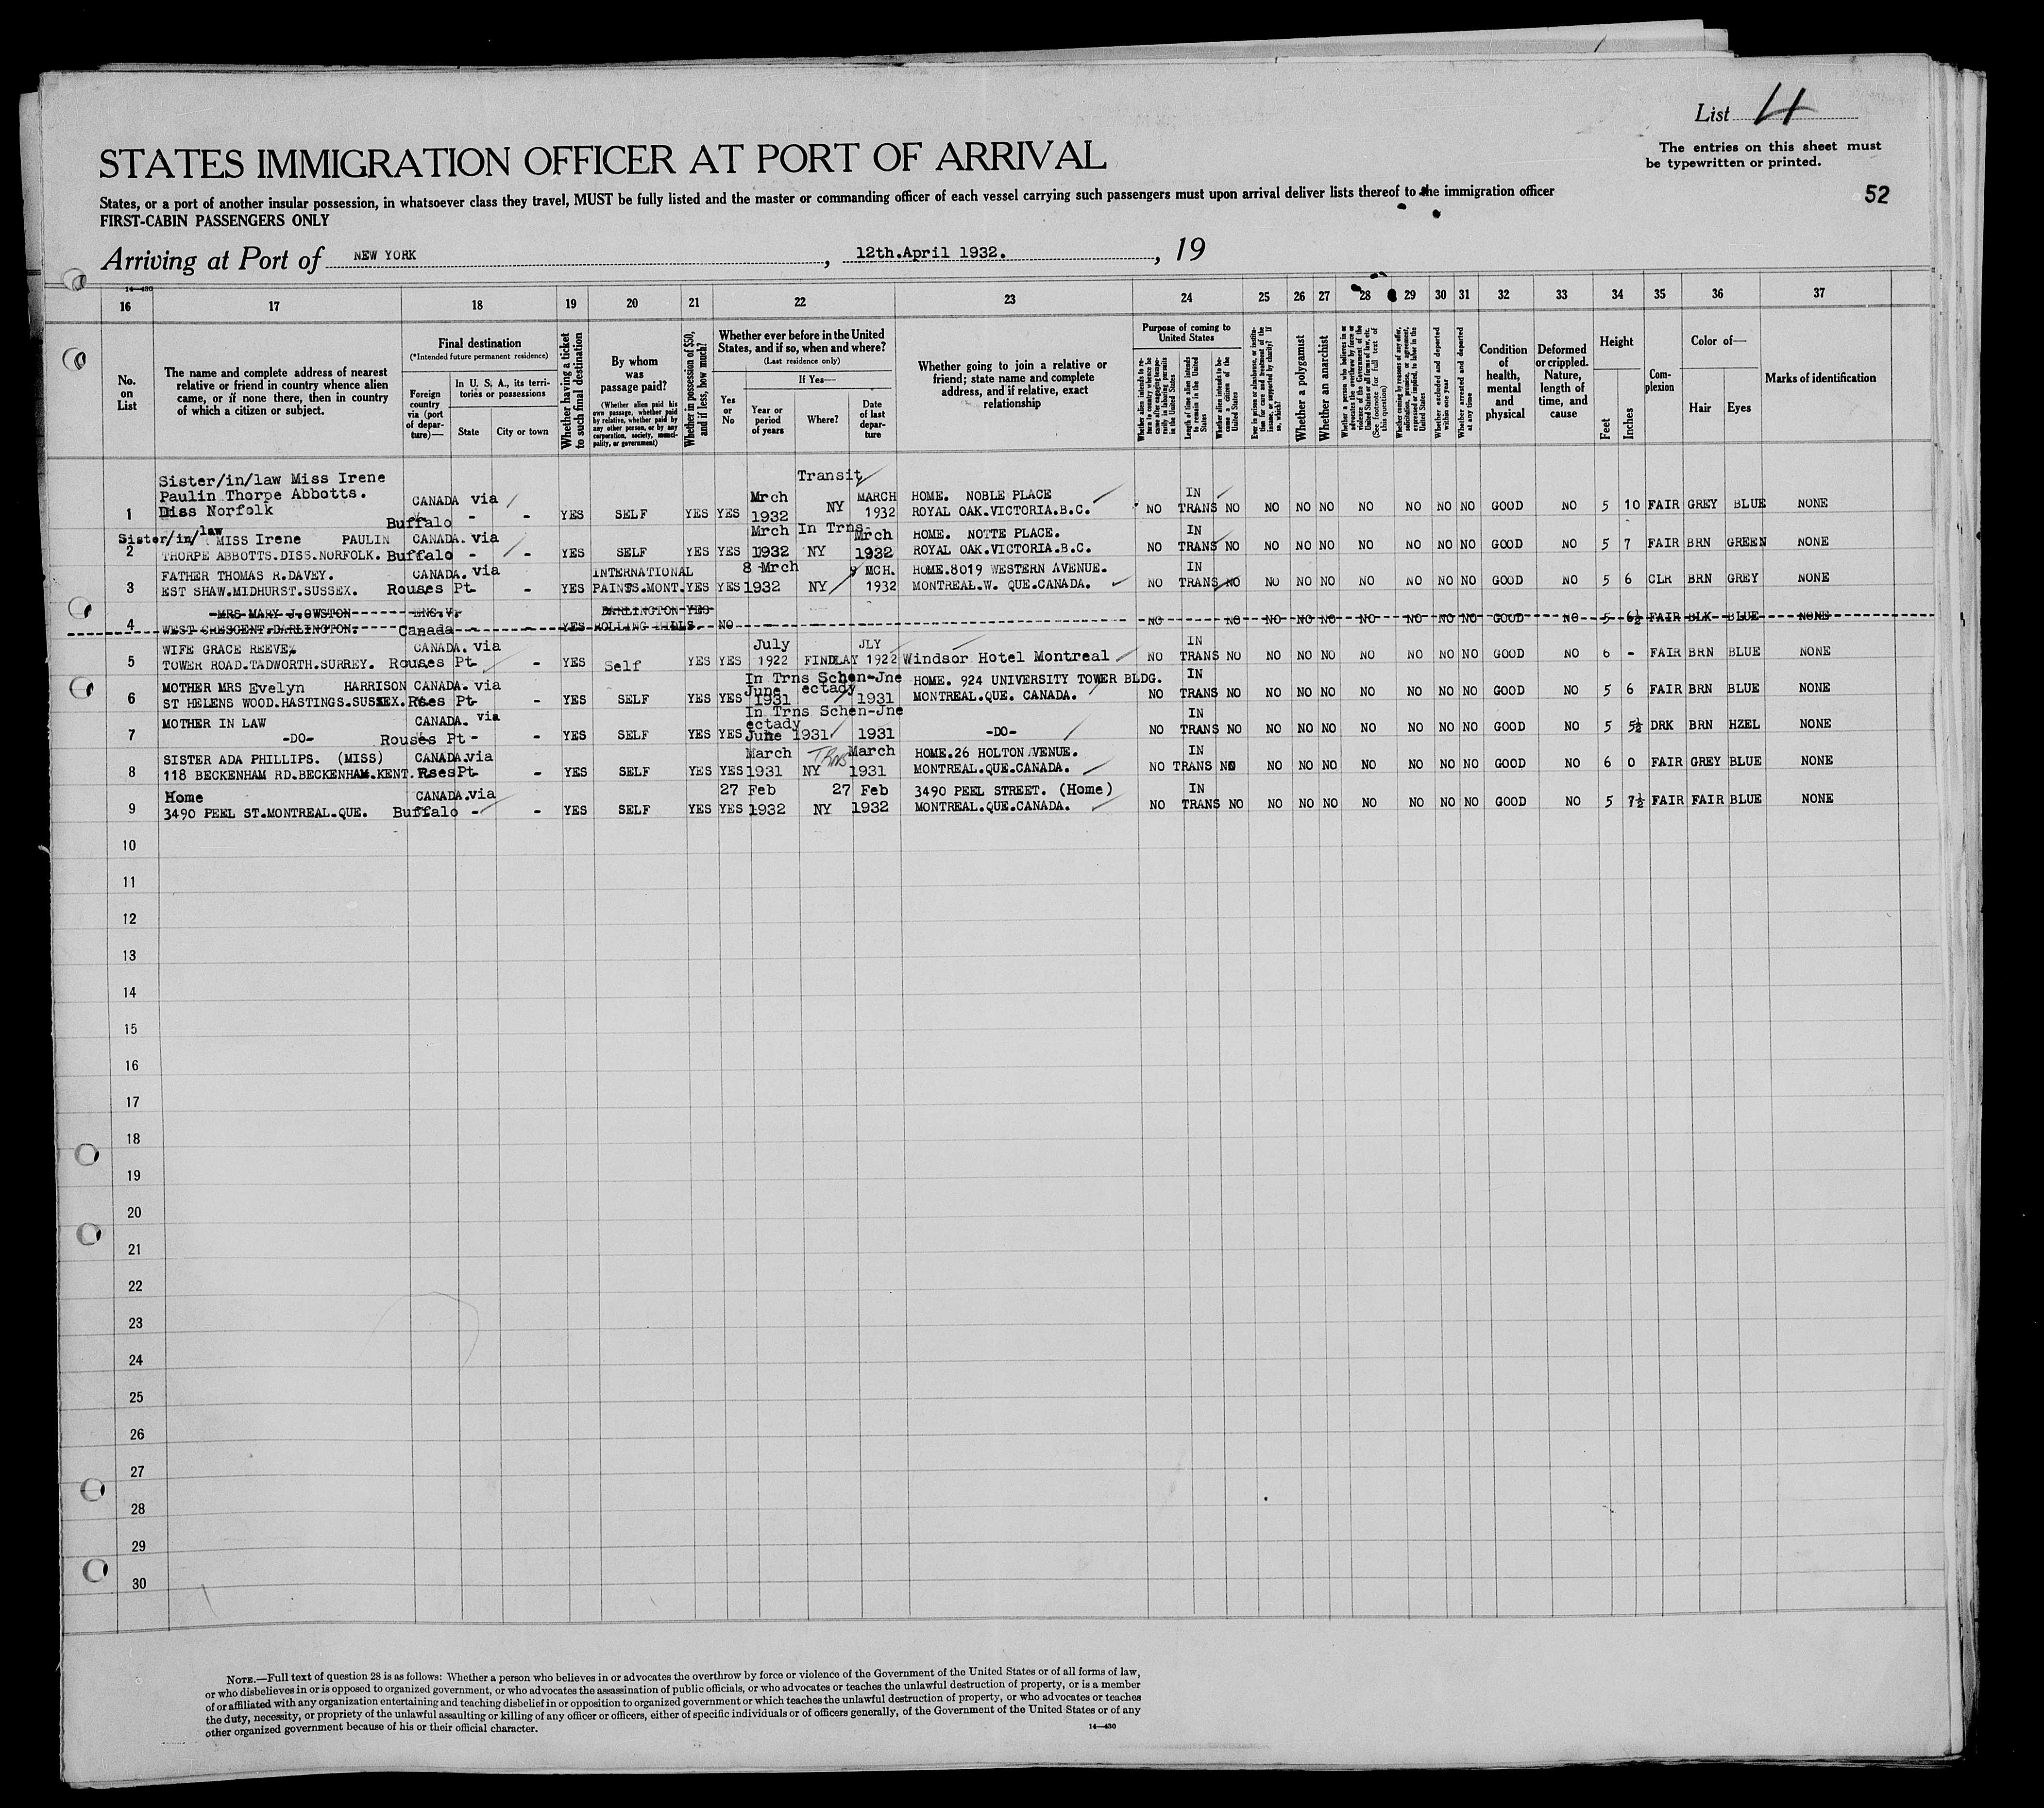 List 4
The entries on this sheet must
be typewritten or printed.
STATES IMMIGRATION OFFICER AT PORT OF ARRIVAL
52
States, or a port of another insular possession, in whatsoever class they travel, MUST be fully listed and the master or commanding officer of each vessel carrying such passengers must upon arrival deliver lists thereof to the immigration officer
FIRST-CABIN PASSENGERS ONLY
Arriving at Port of NEW YORK, 12th.April 1932., 19
14—430
16 17 18 19 20 21 22 23 24 25 26 27 28 29 30 31 32 33 34 35 36 37
No. on List
The name and complete address of nearest relative or friend in country whence alien came, or if none there, then in country of which a citizen or subject.
Final destination
(*Intended future permanent residence)
Foreign country via (port of departure)—
In U. S. A., its territories or possessions
State
City or town
Whether having a ticket to such final destination
By whom was passage paid?
(Whether alien paid his own passage, whether paid by relative, whether paid by any other person, or by any corporation, society, municipality, or government)
Whether in possession of $50, and if less, how much?
Whether ever before in the United States, and if so, when and where?
(Last residence only)
Yes or No
If Yes—
Year or period of years
Where?
Date of last departure
Whether going to join a relative or friend; state name and complete address, and if relative, exact relationship
Purpose of coming to United States
Whether alien intends to return to country whence he came after engaging temporarily in laboring pursuits in the United States
Length of time alien intends to remain in the United States
Whether alien intends to become a citizen of the United States
Ever in prison or almshouse, or institution for care and treatment of the insane, or supported by charity? If so, which?
Whether a polygamist
Whether an anarchist
Whether a person who believes in or advocates the overthrow by force or violence of the Government of the United States or all forms of law, etc. (See footnote for full text of this question)
Whether coming by reason of any offer, solicitation, promise, or agreement, expressed or implied, to labor in the United States
Whether excluded and deported within one year
Whether arrested and deported at any time
Condition of health, mental and physical
Deformed or crippled. Nature, length of time, and cause
Height
Feet
Inches
Complexion
Color of—
Hair
Eyes
Marks of identification
Sister/in/law Miss Irene Transit
Paulin Thorpe Abbotts. CANADA via Mrch MARCH HOME. NOBLE PLACE IN
1 Diss Norfolk Buffalo - - YES SELF YES YES 1932 NY 1932 ROYAL OAK.VICTORIA.B.C. NO TRANS NO NO NO NO NO NO NO NO GOOD NO 5 10 FAIR GREY BLUE NONE
Sister/in/law MISS Irene PAULIN CANADA. via Mrch In Trns Mrch HOME. NOTTE PLACE. IN
2 THORPE ABBOTTS.DISS.NORFOLK. Buffalo - - YES SELF YES YES 1932 NY 1932 ROYAL OAK.VICTORIA.B.C. NO TRANS NO NO NO NO NO NO NO NO GOOD NO 5 7 FAIR BRN GREEN NONE
FATHER THOMAS R.DAVEY. CANADA. via INTERNATIONAL 8 Mrch MCH. HOME.8019 WESTERN AVENUE. IN
3 EST SHAW.MIDHURST.SUSSEX. Rouses Pt - - YES PAINTS.MONT. YES YES 1932 NY 1932 MONTREAL.W. QUE.CANADA. NO TRANS NO NO NO NO NO NO NO NO GOOD NO 5 6 CLR BRN GREY NONE
MRS MARY J.OWSTON ENG.V. DARLINGTON YES
4 WEST CRESCENT.DARLINGTON. Canada - - YES ROLLING MILLS. NO NO NO NO NO NO NO NO NO NO GOOD NO 5 6½ FAIR BLK BLUE NONE
WIFE GRACE REEVE, CANADA. via July JLY IN
5 TOWER ROAD.TADWORTH.SURREY. Rouses Pt - YES Self YES YES 1922 FINDLAY 1922 Windsor Hotel Montreal NO TRANS NO NO NO NO NO NO NO NO GOOD NO 6 - FAIR BRN BLUE NONE
MOTHER MRS Evelyn HARRISON CANADA. via In Trns Schen-Jne HOME. 924 UNIVERSITY TOWER BLDG. IN
6 ST HELENS WOOD.HASTINGS.SUSSEX. Rses Pt - - YES SELF YES YES June 1931 ectady 1931 MONTREAL.QUE. CANADA. NO TRANS NO NO NO NO NO NO NO NO GOOD NO 5 6 FAIR BRN BLUE NONE
MOTHER IN LAW CANADA. via In Trns Schen-Jne IN
7 -DO- Rouses Pt - - YES SELF YES YES ectady June 1931 1931 -DO- NO TRANS NO NO NO NO NO NO NO NO GOOD NO 5 5½ DRK BRN HZEL NONE
SISTER ADA PHILLIPS. (MISS) CANADA.via March Trns March HOME.26 HOLTON AVENUE. IN
8 118 BECKENHAM RD.BECKENHAM.KENT. Rses Pt - - YES SELF YES YES 1931 NY 1931 MONTREAL.QUE.CANADA. NO TRANS NO NO NO NO NO NO NO NO GOOD NO 6 0 FAIR GREY BLUE NONE
Home CANADA.via 27 Feb 27 Feb 3490 PEEL STREET. (Home) IN
9 3490 PEEL ST.MONTREAL.QUE. Buffalo - - YES SELF YES YES 1932 NY 1932 MONTREAL.QUE.CANADA. NO TRANS NO NO NO NO NO NO NO NO GOOD NO 5 7½ FAIR FAIR BLUE NONE
10
11
12
13
14
15
16
17
18
19
20
21
22
23
24
25
26
27
28
29
30
NOTE.—Full text of question 28 is as follows: Whether a person who believes in or advocates the overthrow by force or violence of the Government of the United States or of all forms of law,
or who disbelieves in or is opposed to organized government, or who advocates the assassination of public officials, or who advocates or teaches the unlawful destruction of property, or is a member
of or affiliated with any organization entertaining and teaching disbelief in or opposition to organized government or which teaches the unlawful destruction of property, or who advocates or teaches
the duty, necessity, or propriety of the unlawful assaulting or killing of any officer or officers, either of specific individuals or of officers generally, of the Government of the United States or of any
other organized government because of his or their official character.
14—430